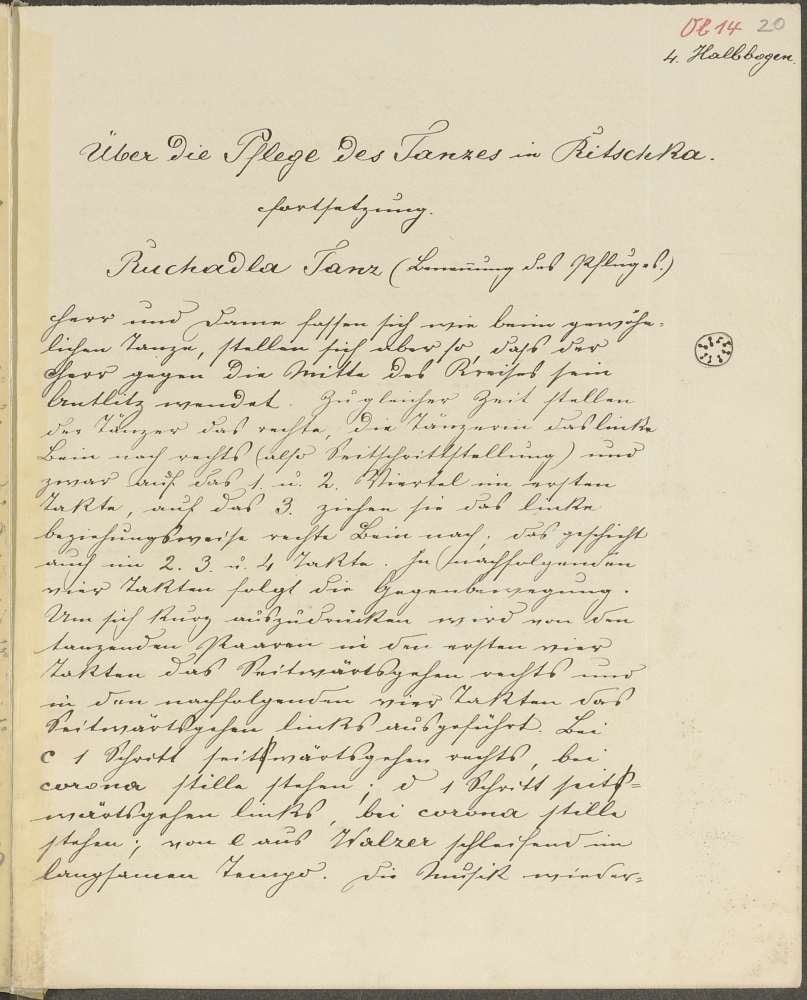 Ob 14 20
4. Halbbogen.
Über die Pflege des Tanzes in Ritschka.
Fortsetzung.
Ruchadla Tanz (Benennung des Pfluges.)
Herr und Dame fassen sich wie beim gewöhn-
lichen Tanze, stellen sich aber so, daß der
Herr gegen die Mitte des Kreises sein
Antlitz wendet. Zu gleicher Zeit stellen
der Tänzer das rechte, die Tänzerin das linke
Bein nach rechts (also Seitschrittstellung) und
zwar auf das 1. u. 2. Viertel im ersten
Takte, auf das 3. ziehen sie das linke
beziehungsweise rechte Bein nach; das geschieht
auch im 2. 3. u. 4 Takte. In nachfolgenden
vier Takten folgt die Gegenbewegung.
Um sich kurz auszudrücken wird von den
tanzenden Paaren in den ersten vier
Takten das Seitwärtsgehen rechts und
in den nachfolgenden vier Takten das
Seitwärtsgehen links ausgeführt. Bei
c 1 Schritt seitswärtsgehen rechts, bei
corona stille stehen; d 1 Schritt seits-
wärtsgehen links, bei corona stille
stehen; von e aus Walzer schleifend im
langsamen Tempo. Die Musik wieder-